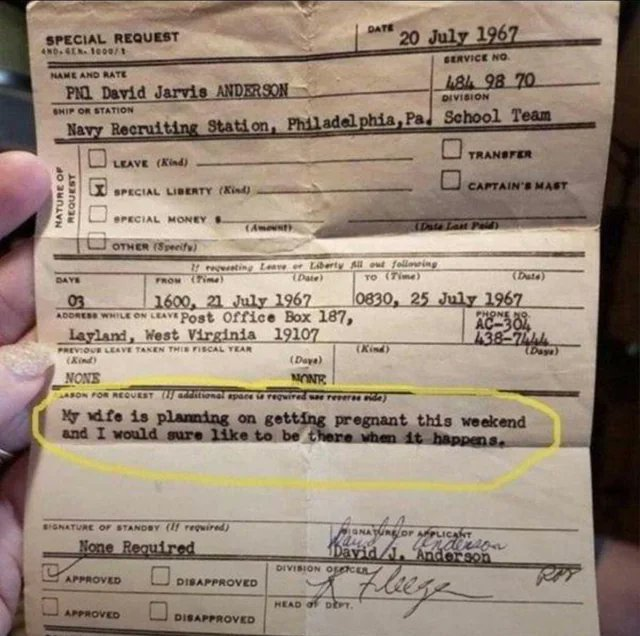 SPECIAL REQUEST
DATE 20 July 1967
SERVICE NO.
NAME AND RATE
PN1 David Jarvis ANDERSON
484 98 70
SHIP OR STATION
DIVISION
Navy Recruiting Station, Philadelphia, Pa. School Team
NATURE OF REQUEST
LEAVE (Kind)
TRANSFER
X SPECIAL LIBERTY (Kind)
CAPTAIN'S MAST
SPECIAL MONEY $
(Amount)
(Date Last Paid)
OTHER (Specify)
If requesting Leave or Liberty fill out following
DAYS FROM (Time) (Date) TO (Time) (Date)
03 1600, 21 July 1967 0830, 25 July 1967
ADDRESS WHILE ON LEAVE Post Office Box 187,
PHONE NO.
AC-304
Layland, West Virginia 19107
438-7444
PREVIOUS LEAVE TAKEN THIS FISCAL YEAR
(Kind) (Days) (Kind) (Days)
NONE NONE
REASON FOR REQUEST (If additional space is required use reverse side)
My wife is planning on getting pregnant this weekend
and I would sure like to be there when it happens.
SIGNATURE OF STANDBY (If required)
SIGNATURE OF APPLICANT
None Required
David J. Anderson
David J. Anderson
APPROVED DISAPPROVED
DIVISION OFFICER
APPROVED DISAPPROVED
HEAD OF DEPT.